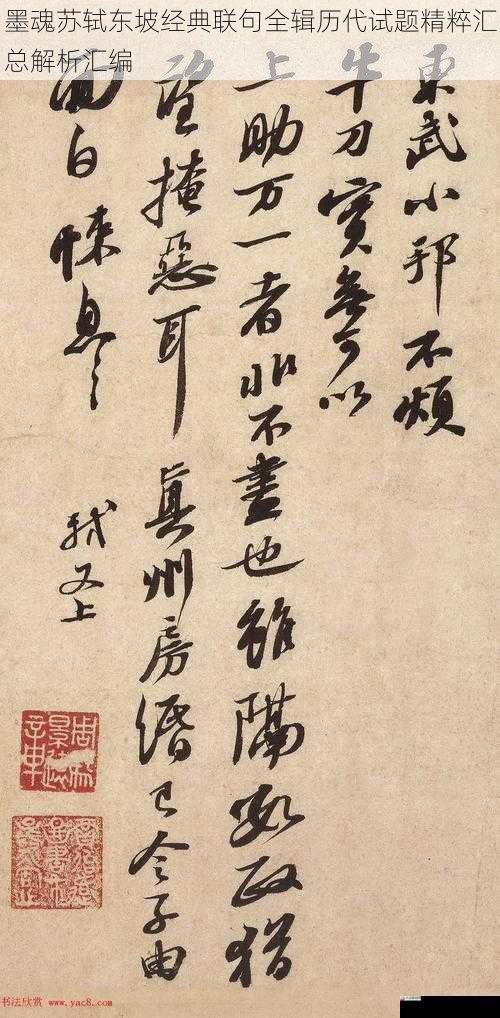 墨魂苏轼东坡经典联句全辑历代试题精粹汇
总解析汇编
東武小邦不煩
牛刀實無可以
上助万一者非不盡也雖隔數政猶
望掩惡耳真州房緡已令子由
面白悚息〻
軾又上
书法欣赏 www.yac8.com